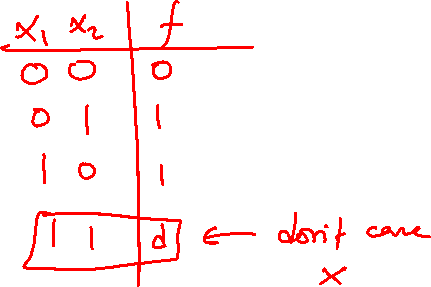 x₁ x₂ f
0 0 0
0 1 1
1 0 1
1 1 d ← don't care
x